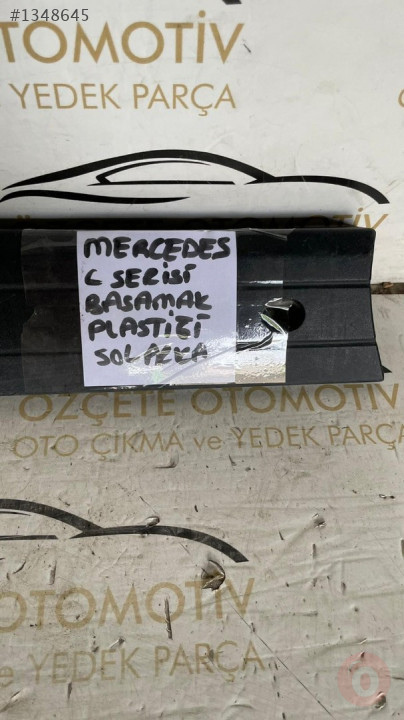 #1348645
OTOMOTİV
YEDEK PARÇA
MERCEDES
C SERİSİ
BASAMAK
PLASTİĞİ
SOL ARKA
ÖZÇETE OTOMOTİV
OTO ÇIKMA ve YEDEK PARÇA
OTOMOTİV
ve YEDEK PARÇA